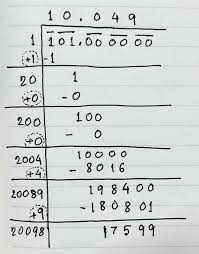 10.049
1 101.000000
+1 -1
20 1
+0 -0
200 100
+0 - 0
2004 10000
+4 - 8016
20089 198400
+9 -180801
20098 17599